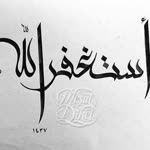 أستغفر الله
١٤٣٧